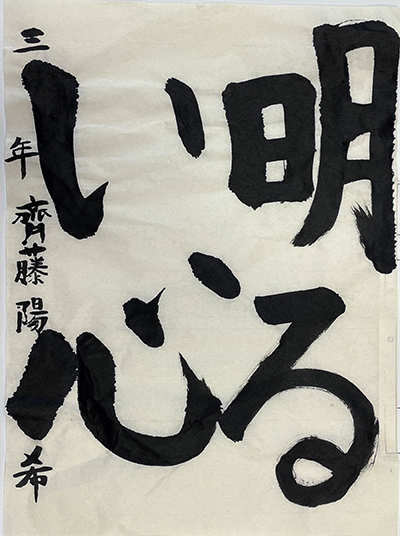 明る
い心
三年 齊藤陽希